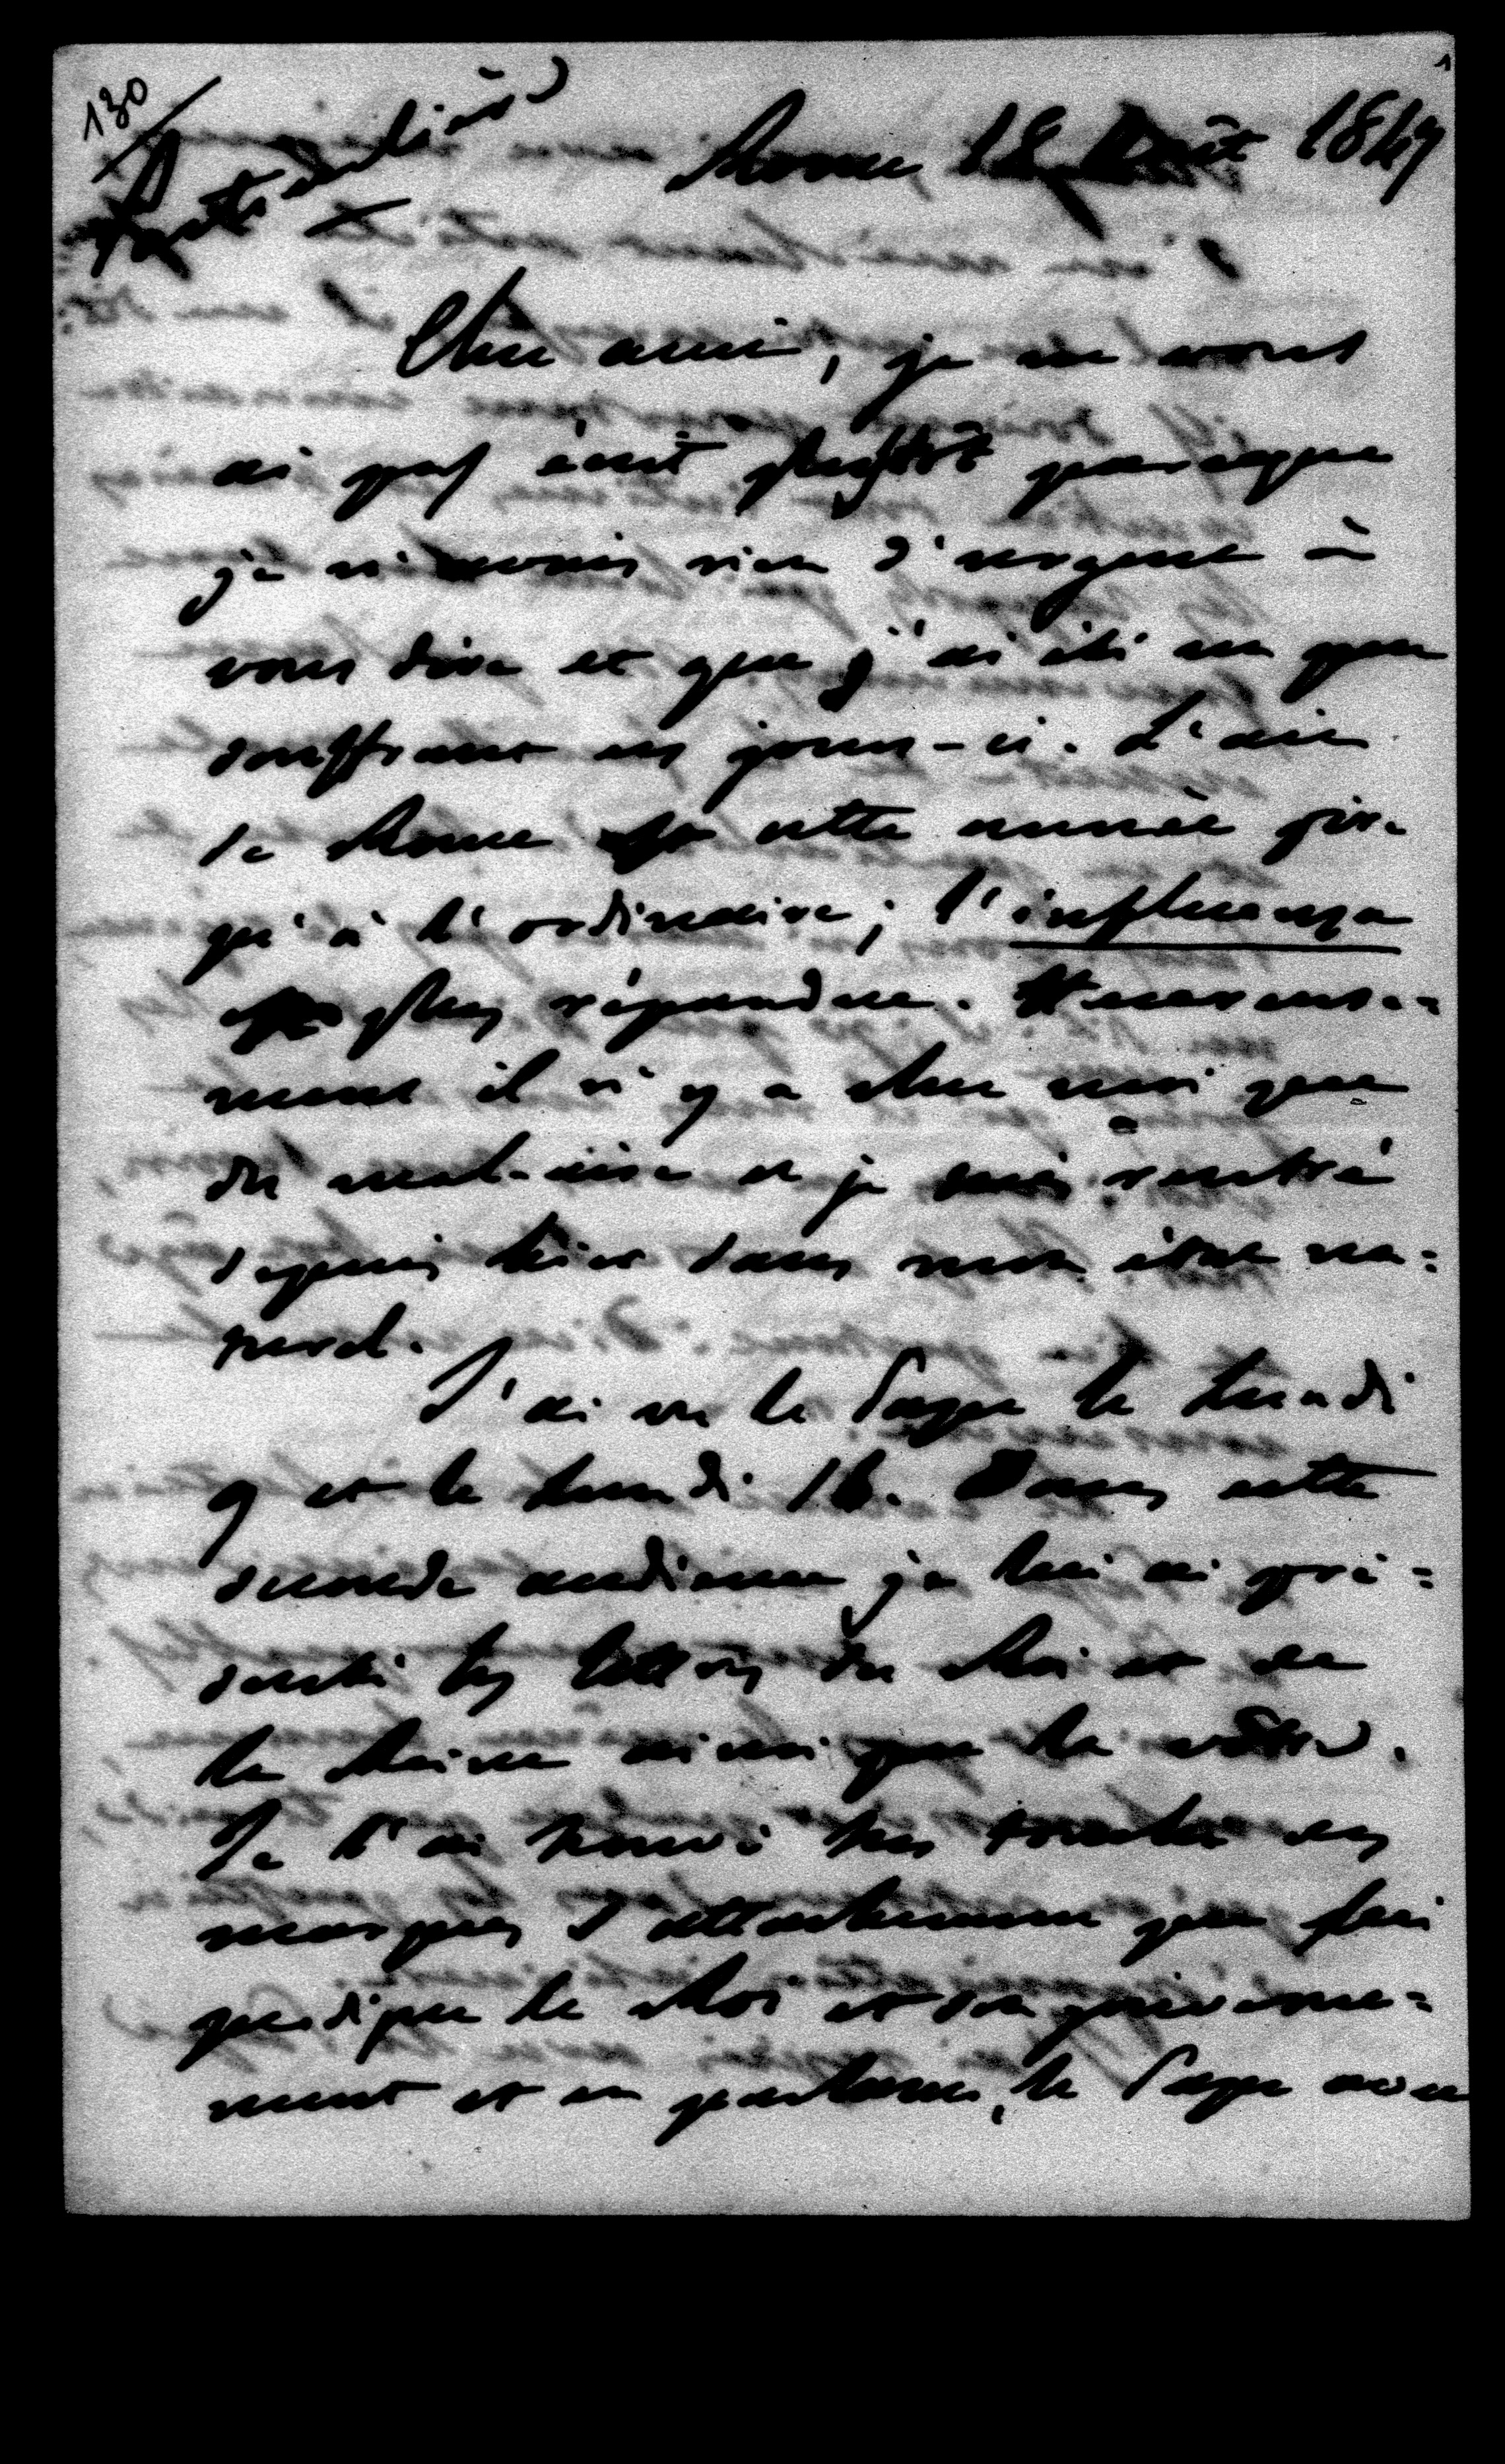 130
1
Particulière
Rome 18 Août 1847
Cher ami, je ne vous
ai pas écrit plustôt parceque
je n'avais rien d'urgent à
vous dire et que j'ai été un peu
souffrant ces jours-ci. L'air
de Rome est cette année pire
qu'à l'ordinaire; l'influenza
plus répandue. Heureuse=
ment il n'y a chez moi que
du mal-aise et je suis rentré
depuis hier dans mon état na=
turel.
J'ai vu le Pape le lundi
9 et le lundi 16. Dans cette
seconde audience je lui ai pré=
senté les lettres du Roi et de
la Reine ainsi que la vôtre.
Je l'ai trouvé très touché des
marques d'attachement que lui
prodigue le Roi et son gouverne=
ment et en parlant, le Pape avec